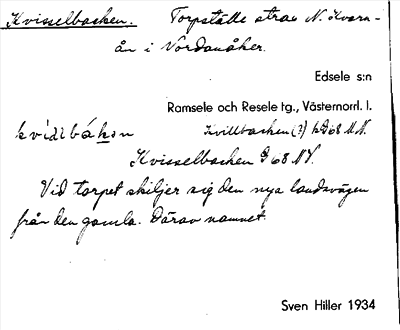 Kvisselbacken. Torpställe strax N. Kvarn-
ån i Nordanåker.
Edsele s:n
Ramsele och Resele tg., Västernorrl. l.
Kvillbacken (?) 68 NV.
Kvisselbacken 68 NV.
Vid torpet skiljer sig den nya landsvägen
från den gamla. Därav namnet.
Sven Hiller 1934